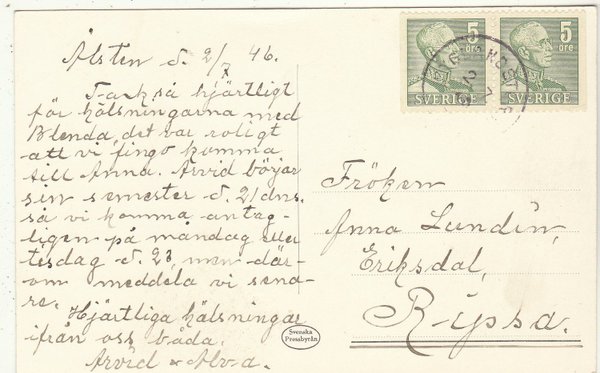 Ålsten d. 2/7 46.
Tack så hjärtligt
för hälsningarna med
Blenda, det var roligt
att vi fingo komma
till Anna. Arvid börjar
sin semester d. 21 dns.
så vi komma antag-
ligen på måndag eller
tisdag d. 23, men där-
om meddela vi sena-
re.
Hjärtliga hälsningar
ifrån oss båda.
Arvid & Alva.
Svenska
Pressbyrån
5
ÖRE
SVERIGE
5
ÖRE
SVERIGE
Fröken
Anna Lundin,
Eriksdal,
Ripsa.